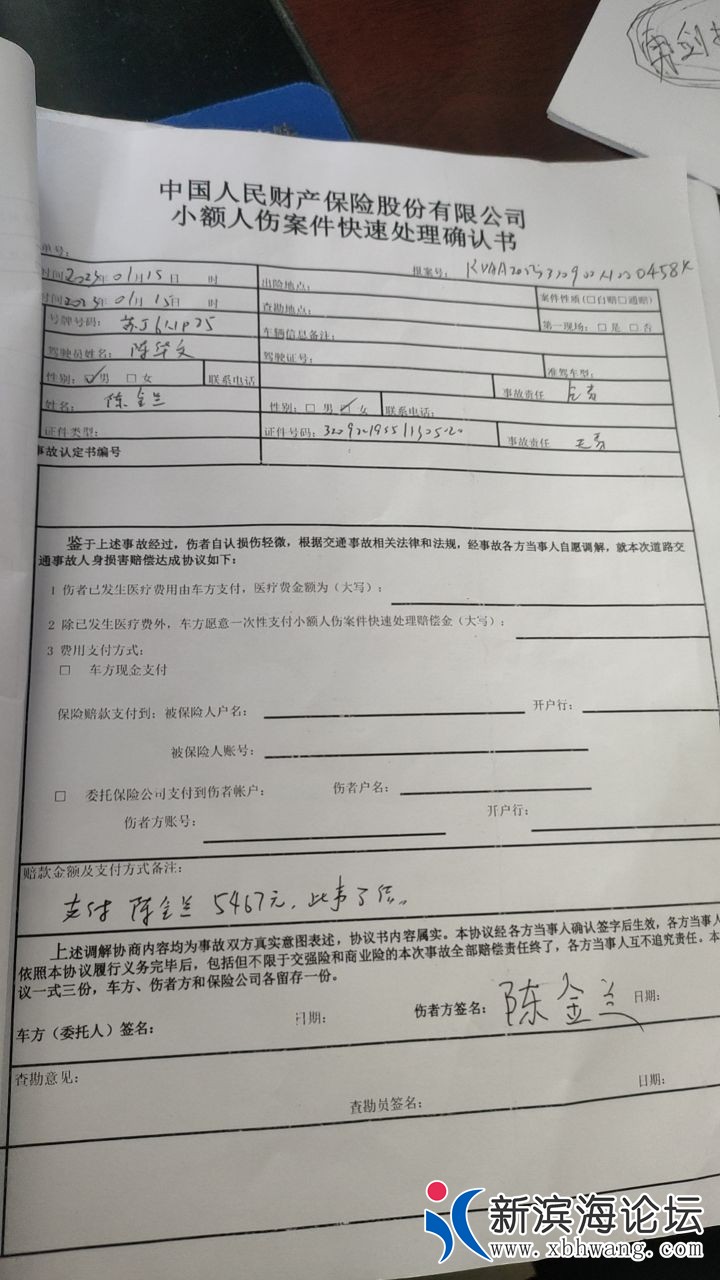 中国人民财产保险股份有限公司
小额人伤案件快速处理确认书
单号: 报案号:
时间 年01月15日 时 出险地点:
时间 年01月15日 时 查勘地点: 案件性质(□自赔□通赔)
号牌号码: 车辆信息备注: 第一现场: □ 是 □ 否
驾驶员姓名: 陈华文 驾驶证号: 准驾车型:
性别: □男 □女 联系电话 事故责任 全责
姓名: 陈金兰 性别: □ 男 □ 女 联系电话: 
证件类型: 证件号码: 事故责任 无责
事故认定书编号
鉴于上述事故经过，伤者自认损伤轻微，根据交通事故相关法律和法规，经事故各方当事人自愿调解，就本次道路交
通事故人身损害赔偿达成协议如下:
1 伤者已发生医疗费用由车方支付，医疗费金额为（大写）;
2 除已发生医疗费外，车方愿意一次性支付小额人伤案件快速处理赔偿金（大写）;
3 费用支付方式:
□ 车方现金支付
保险赔款支付到: 被保险人户名: 开户行:
被保险人账号:
□ 委托保险公司支付到伤者帐户: 伤者户名:
伤者方账号: 开户行:
赔款金额及支付方式备注:
支付 陈金兰 5467元，此事了结。
上述调解协商内容均为事故双方真实意图表述，协议书内容属实。本协议经各方当事人确认签字后生效，各方当事人
依照本协议履行义务完毕后，包括但不限于交强险和商业险的本次事故全部赔偿责任终了，各方当事人互不追究责任。本
议一式三份，车方、伤者方和保险公司各留存一份。
车方（委托人）签名: 日期: 伤者方签名: 陈金兰 日期:
查勘意见:
查勘员签名: 日期:
新滨海论坛
www.xbhwang.com